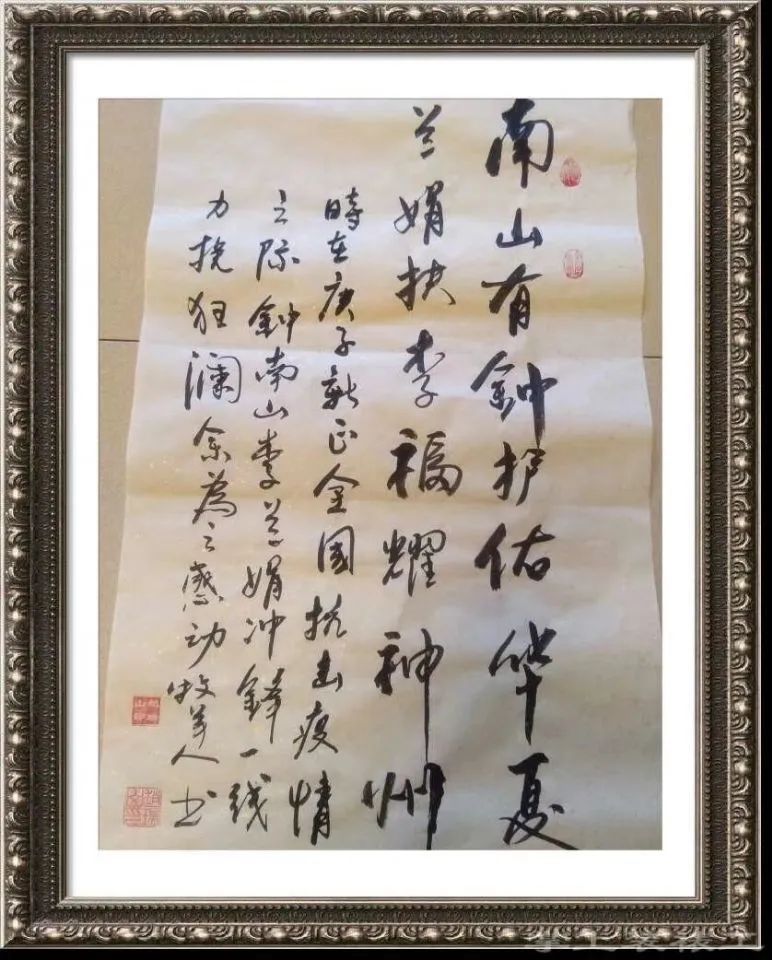 南山有鈡护佑华夏
兰娟扶李福耀神州
時在庚子新正全國抗击疫情
之际鈡南山李兰娟冲鋒一线
力挽狂澜余為之感动牧羊人书